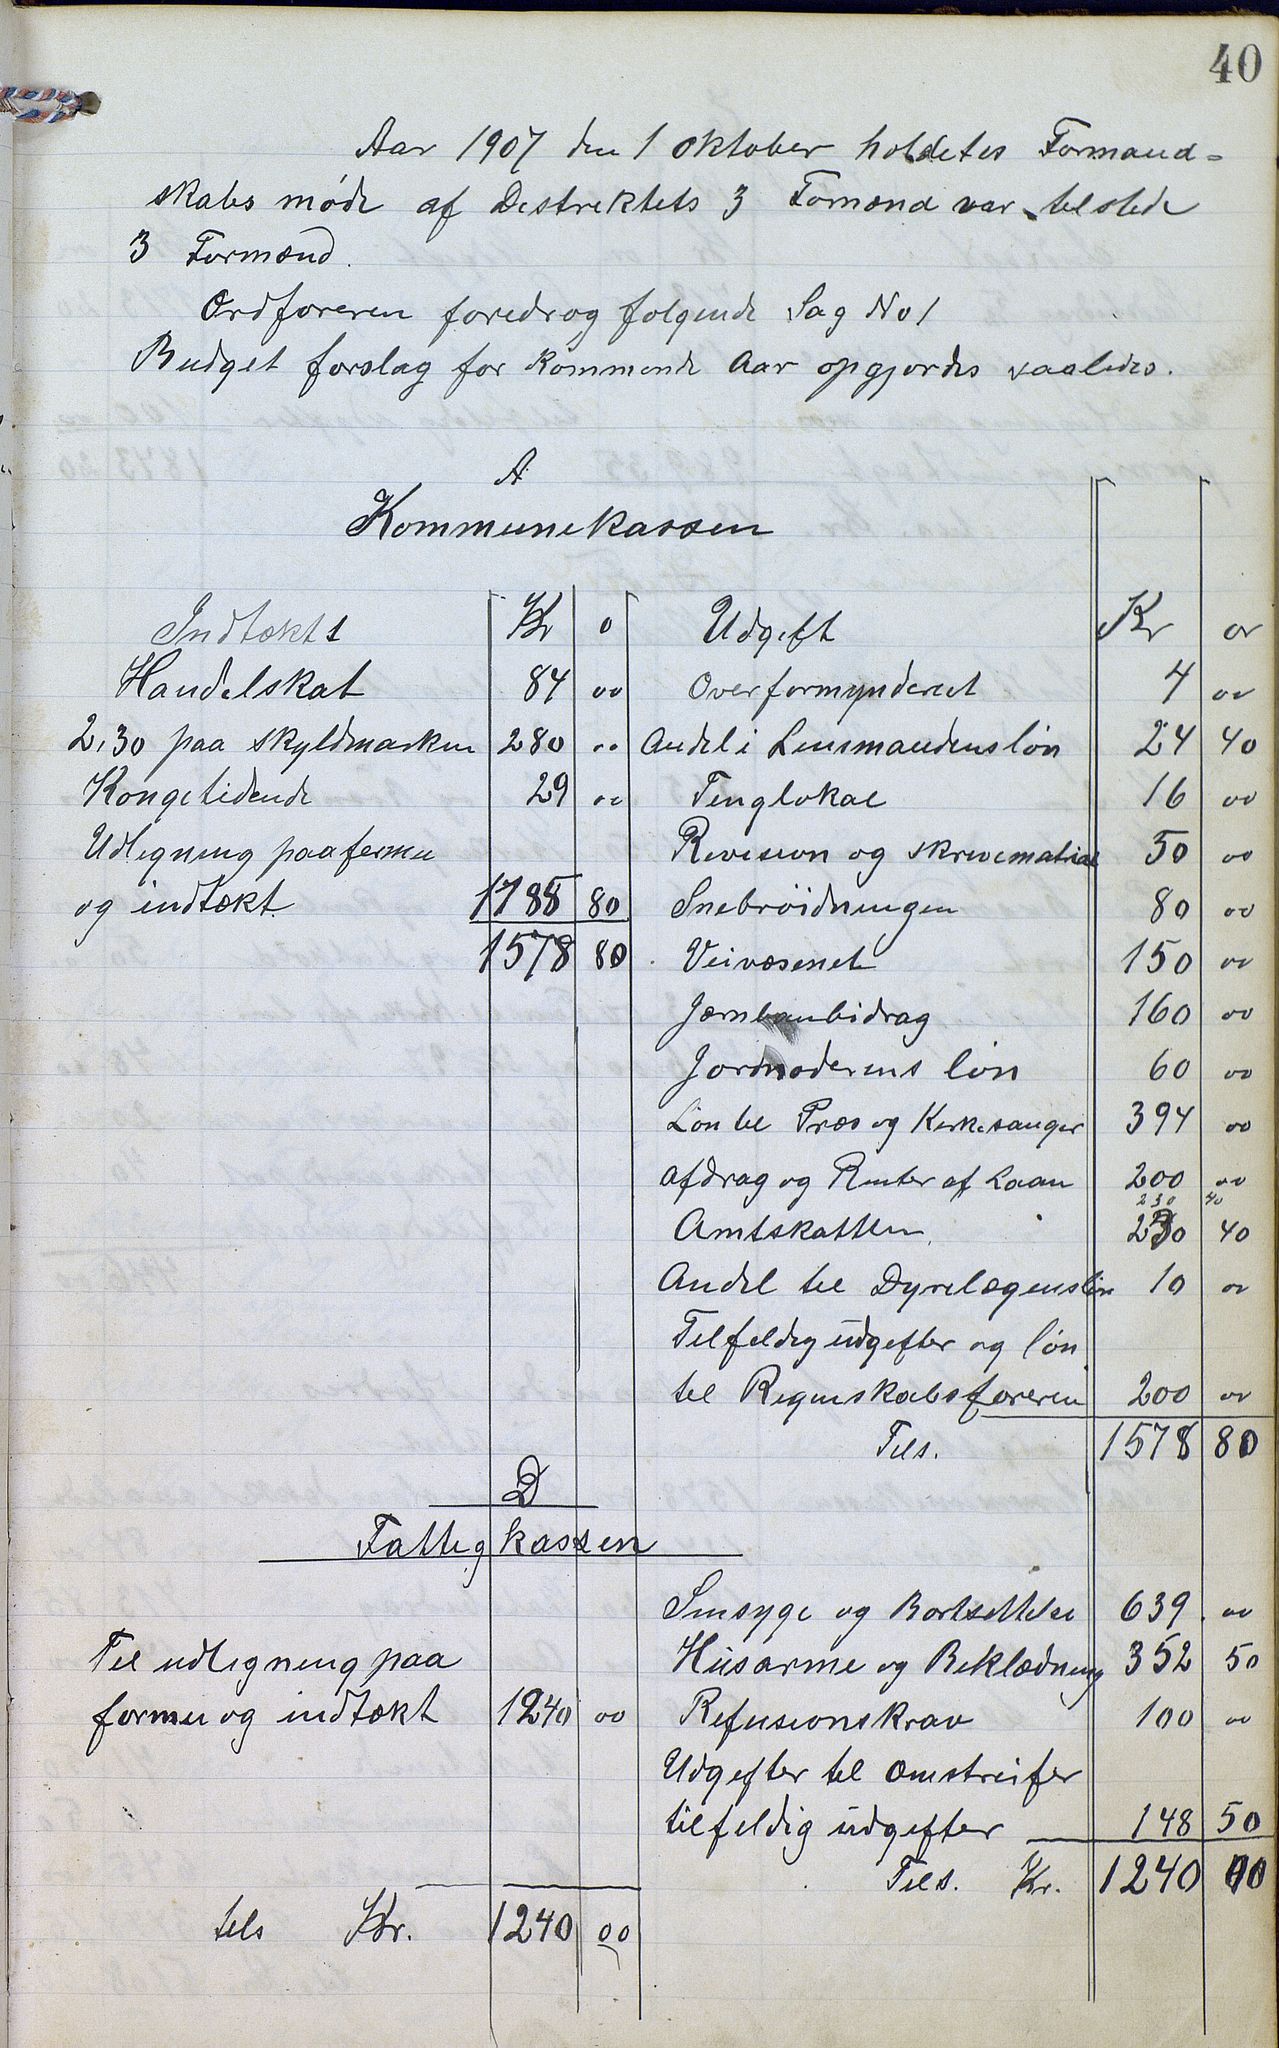 40
Aar 1907 den 1 oktober holdetes Formand=
skabs møde af Destrektets 3 Formænd var telstede
3 Formænd.
Ordføreren foredrog følgende Sag No 1
Budget forslag for kommende Aar opgjordes saaledes.
A
Kommunekassen
Indtækt Kr o Udgift Kr or
Handelskat 84 00 Overformynderiet 4 00
2,30 paa skyldmarken 280 00 Andel i Lensmandens løn 24 40
Kongetidende 29 00 Tinglokal 16 00
Udligning paa formue Revesion og skrivematrial 50 00
og indtækt 1185 80 Snebrøidningen 80 00
1578 80 Veivæsenet 150 00
Jærnbanbidrag 160 00
Jordmoderens løn 60 00
Løn tel Præs og Kerkesanger 394 00
afdrag og Renter af Laan 200 00
230 40
Amtskatten 230 40
Andel tel Dyrelægens løn 10 00
Tilfeldig udgefter og løn
tel Regenskabsføreren 200 00
Tels. 1578 80
D
Fattigkassen
Sinsyge og Bortsettelse 639 00
Tel udligning paa Husarme og Beklædning 352 50
formue og indtækt 1240 00 Refusionskrav 100 00
Udgefter tel Omstreifer
tilfeldig udgefter 148 50
Tels. Kr. 1240 00
tels Kr. 1240 00